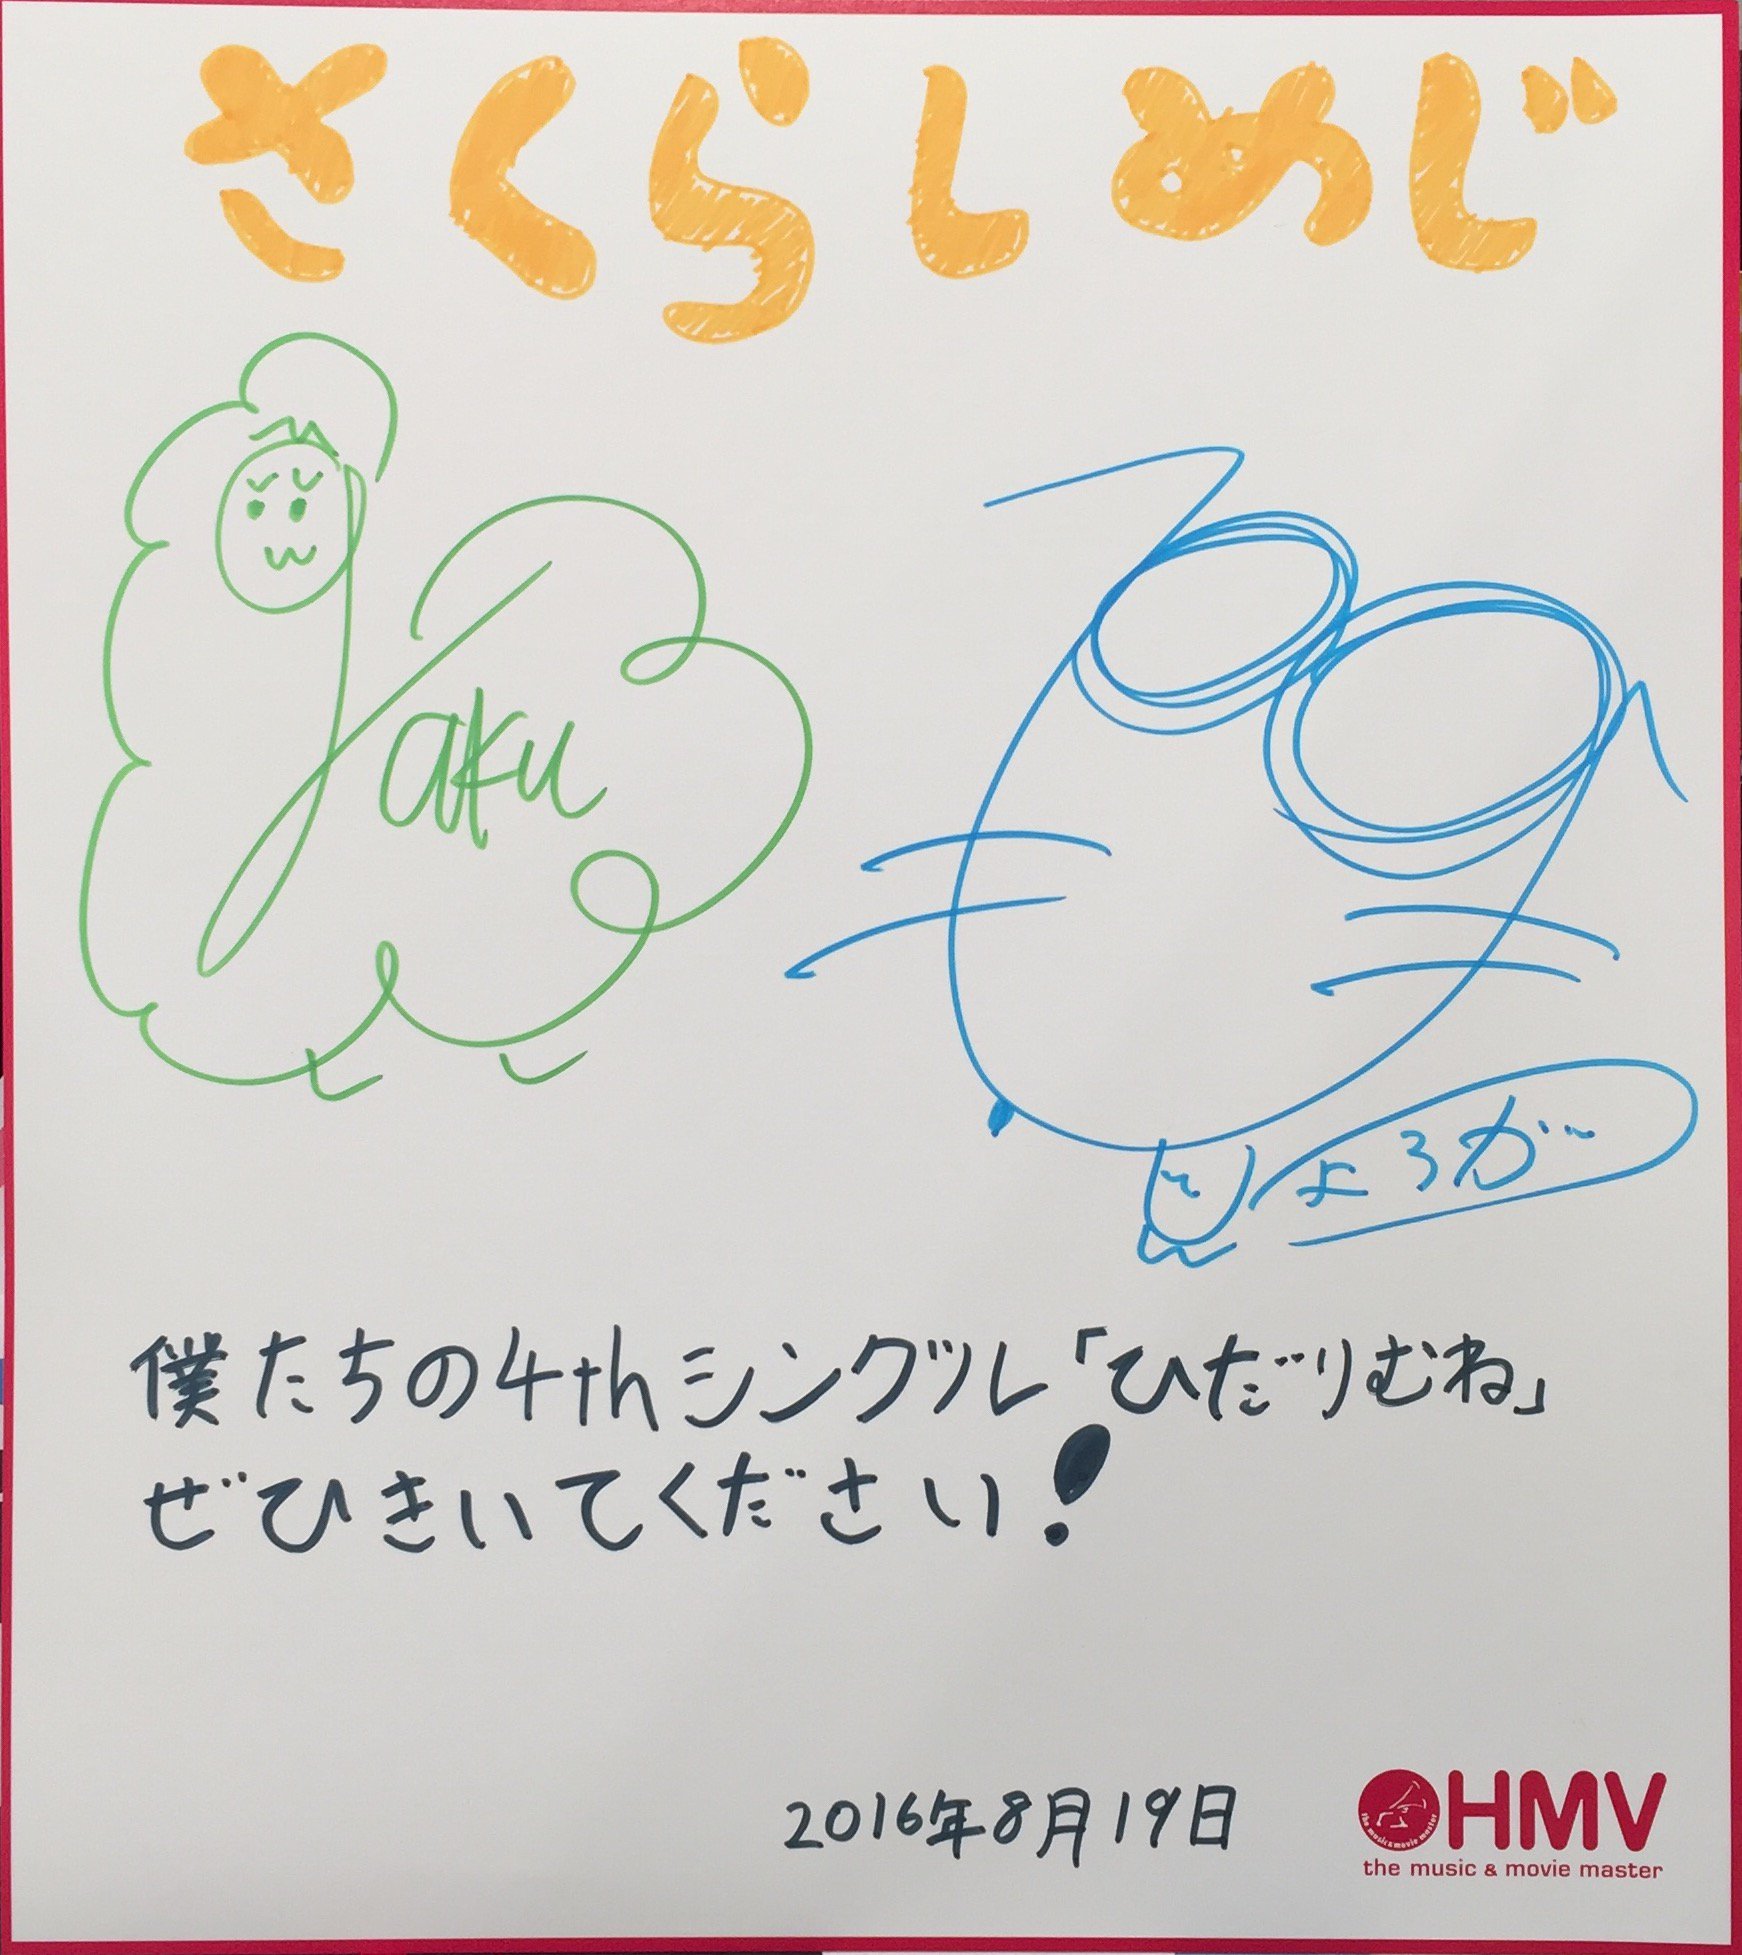 さくらしめじ
gaku
ひょうが
僕たちの4thシングル「ひだりむね」
ぜひきいてください!
2016年8月19日
HMV
the music & movie master